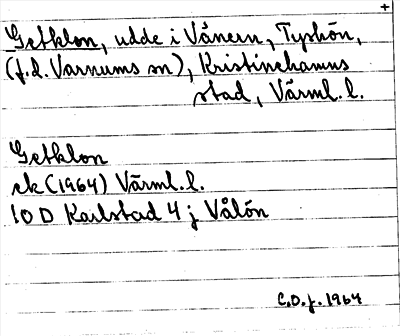 +
Getklon, udde i Vänern, Tyskön,
(f.d. Varnums sn), Kristinehamns
stad, Värml. l.
Getklon
ek (1964) Värml. l.
10 D Karlstad 4 j Vålön
C.O.f. 1964